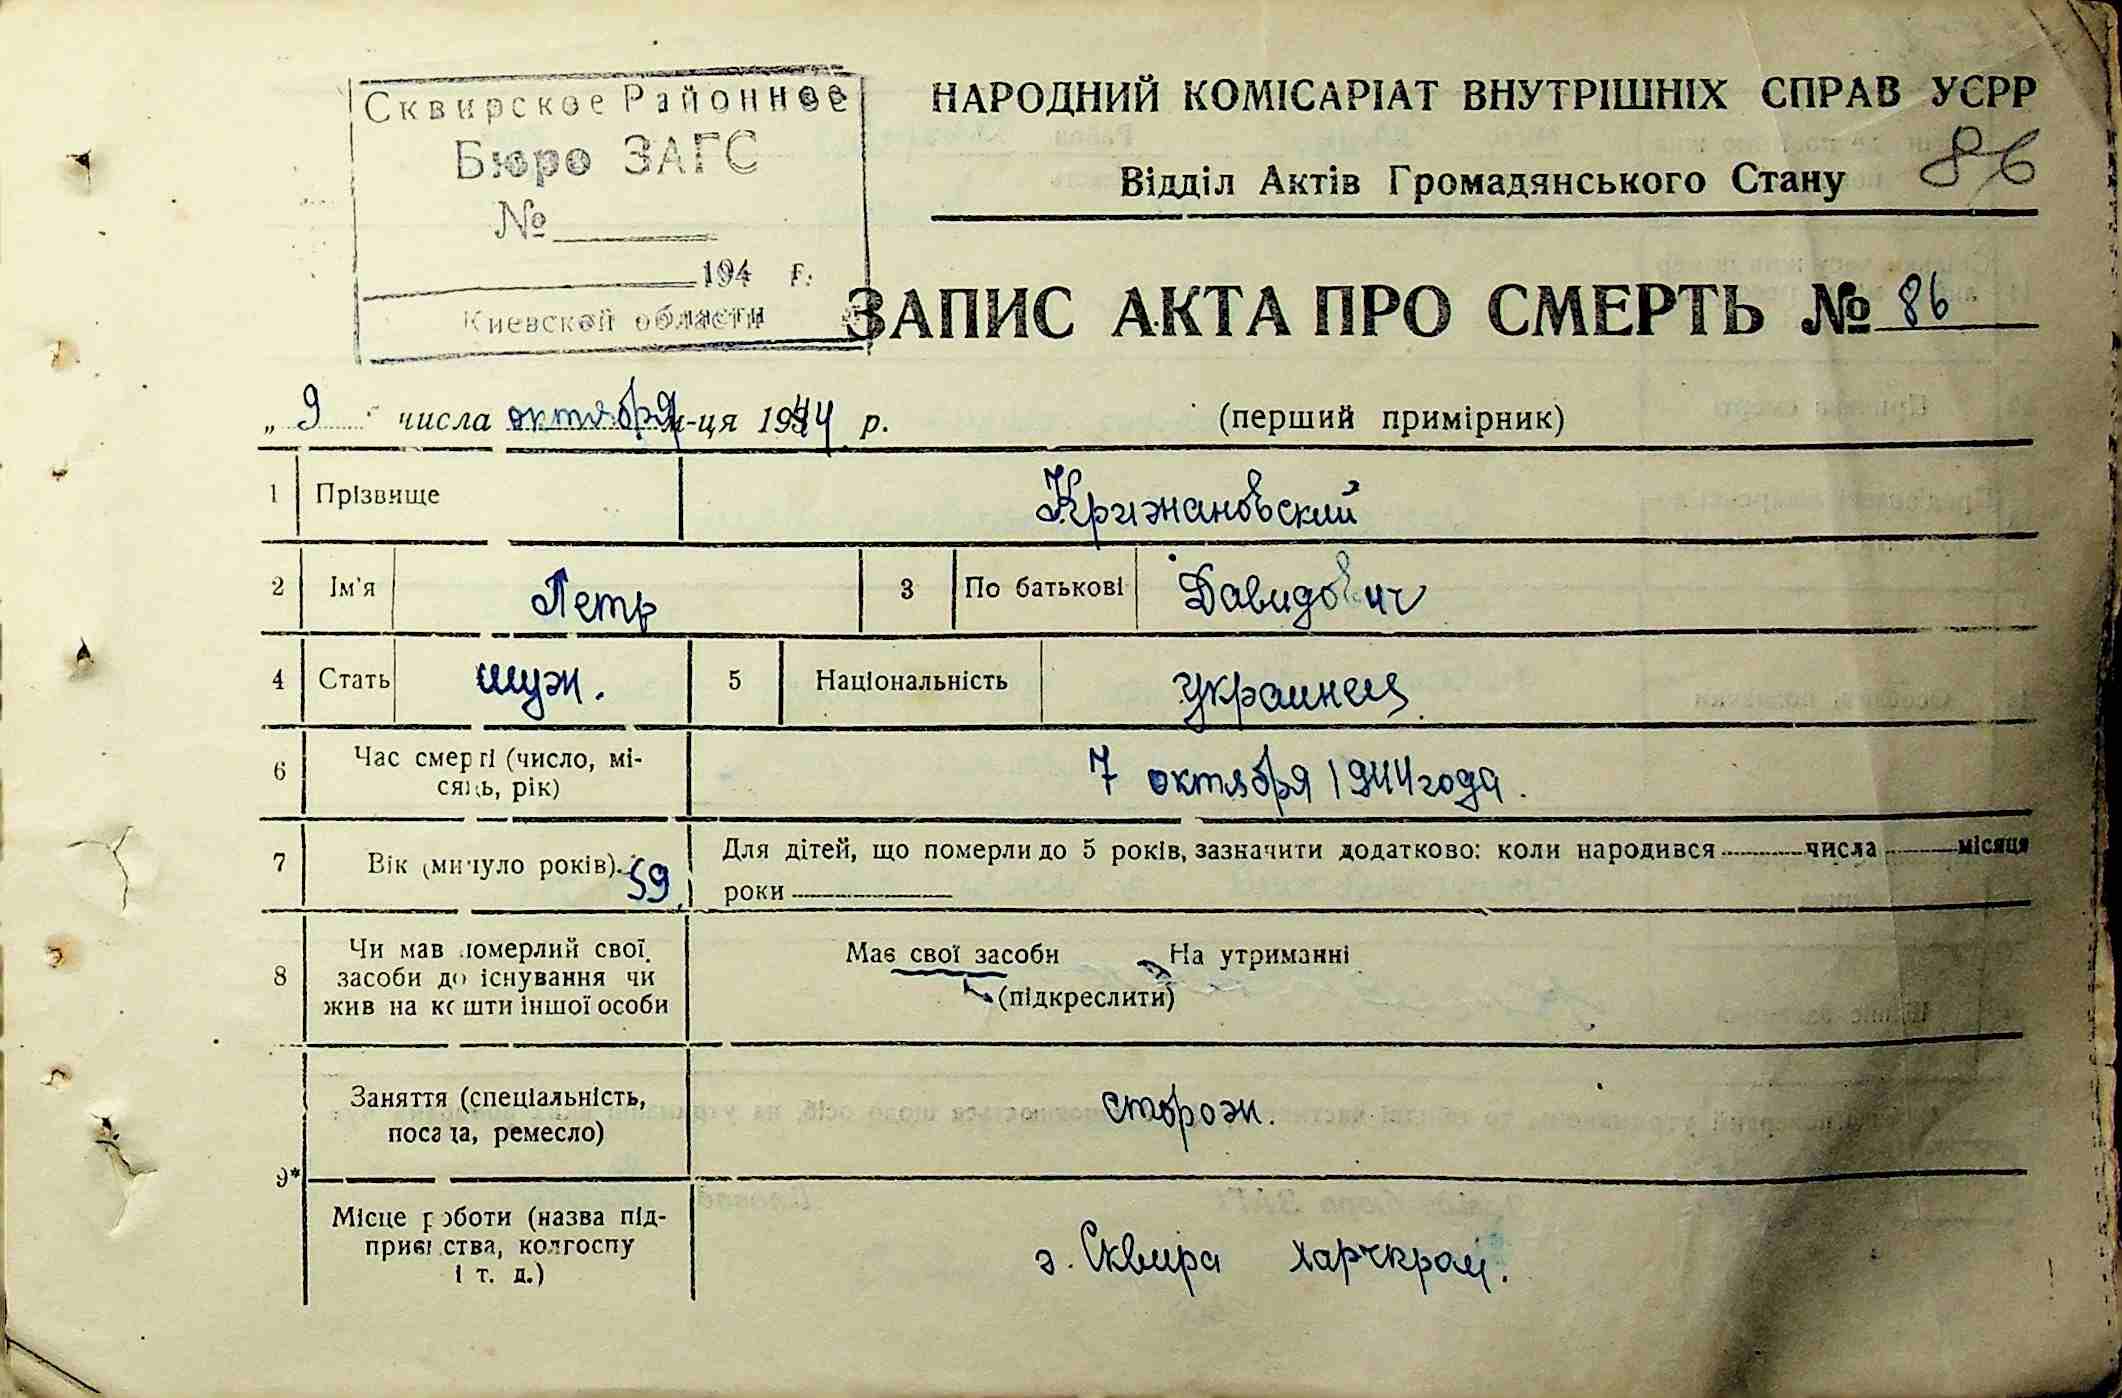 Сквирское Районное
Бюро ЗАГС
№
194 г.
Киевской области
НАРОДНИЙ КОМІСАРІАТ ВНУТРІШНІХ СПРАВ УСРР
86
Відділ Актів Громадянського Стану
ЗАПИС АКТА ПРО СМЕРТЬ № 86
„ 9 " числа октября м-ця 1944 р. (перший примірник)
1 Прізвище Крижановский
2 Ім'я Петр 3 По батькові Давидович
4 Стать муж. 5 Національність украинец
6 Час смерті (число, мі-
сяць, рік) 7 октября 1944 года.
7 Вік (минуло років). 59 Для дітей, що померли до 5 років, зазначити додатково: коли народився числа місяця
роки
8 Чи мав померлий свої
засоби до існування чи
жив на кошти іншої особи
Має свої засоби На утриманні
(підкреслити)
9* Заняття (спеціальність,
посада, ремесло) сторож.
Місце роботи (назва під-
приємства, колгоспу
і т. д.) г. Сквира харчкром.